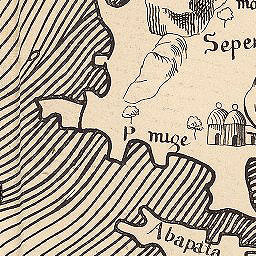 Seper
P. muge
Abapata